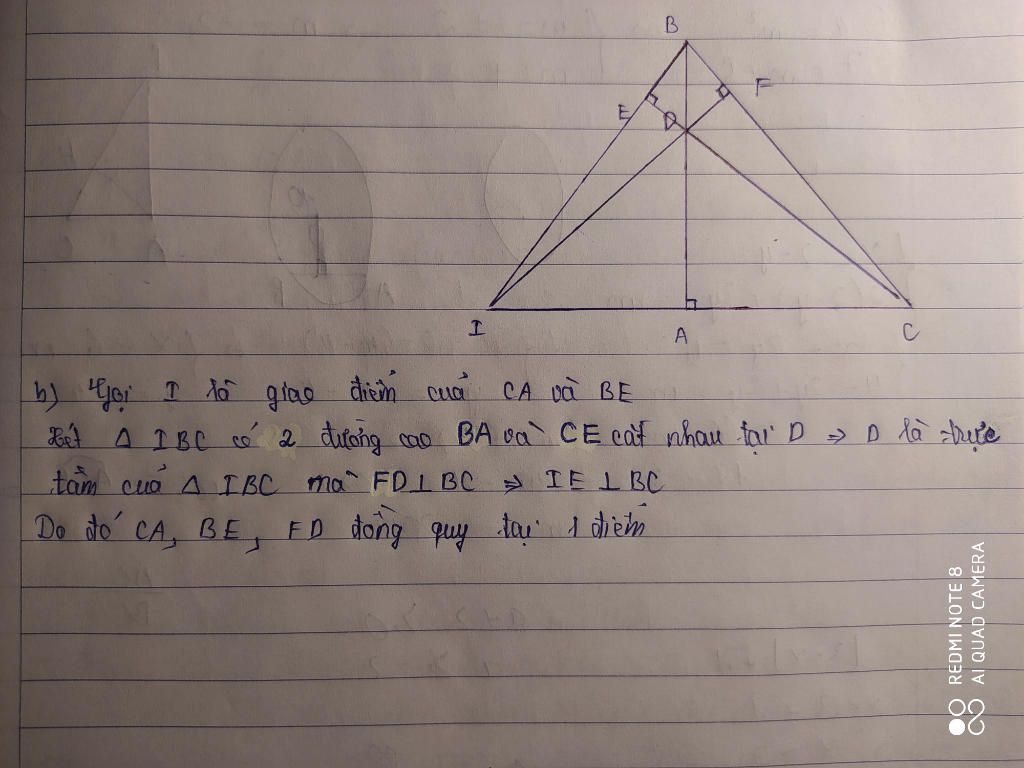 B
E
D
F
I
A
C
b) Gọi I là giao điểm cuả CA và BE
Xét Δ IBC có 2 đường cao BA và CE cắt nhau tại D ⇒ D là trực
tâm cuả Δ IBC mà FD ⊥ BC ⇒ IF ⊥ BC
Do đó CA, BE, FD đồng quy tại 1 điểm
REDMI NOTE 8
AI QUAD CAMERA